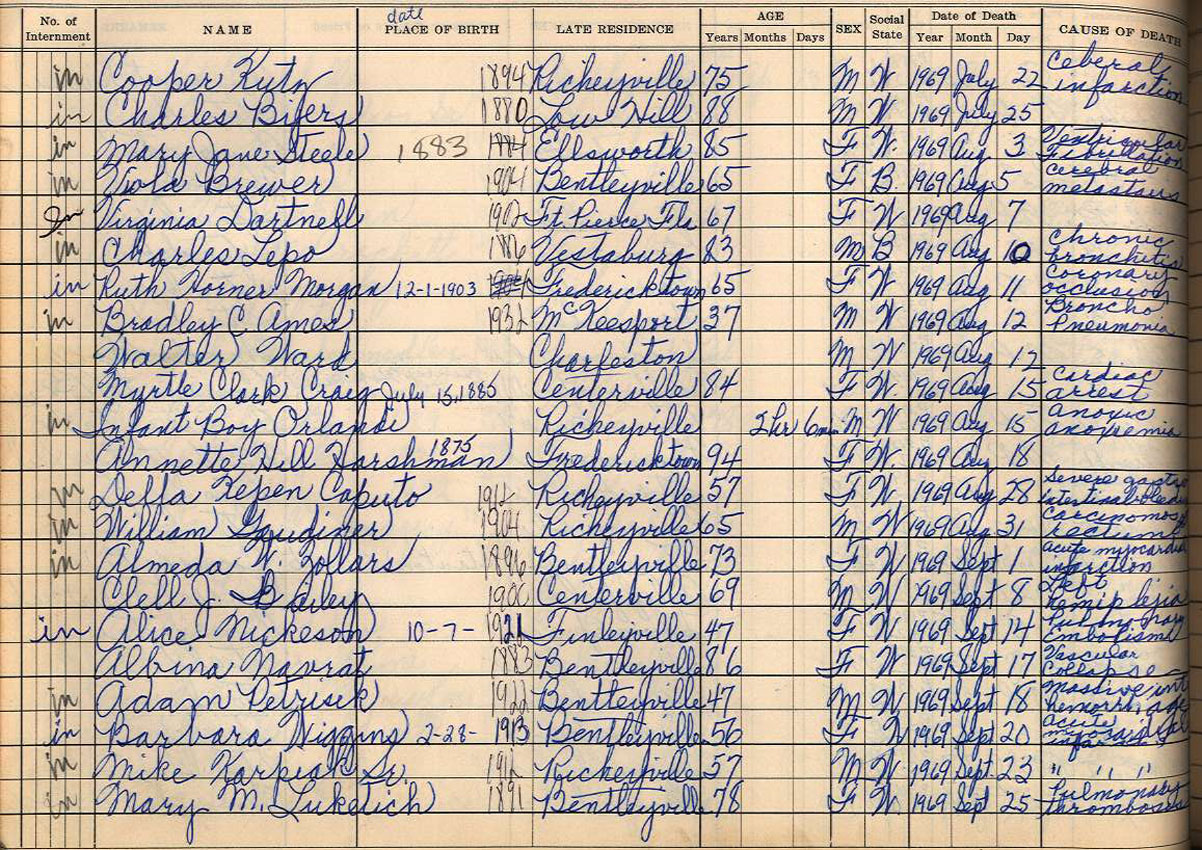 No. of Internment NAME date PLACE OF BIRTH LATE RESIDENCE AGE Years Months Days SEX Social State Date of Death Year Month Day CAUSE OF DEATH
in Cooper Kutz 1894 Richeyville 75 M W 1969 July 22 Ceberal infarction
in Charles Biyers 1880 Low Hill 88 M W 1969 July 25
in Mary Jane Steele 1883 1884 Ellsworth 85 F W. 1969 Aug 3 Ventricular Fibrillation
in Viola Brewer 1904 Bentleyville 65 F B. 1969 Aug 5 cerebral metastasis
In Virginia Dartnell 1902 Ft. Pierce Fla 67 F W 1969 Aug 7
in Charles Lepo 1886 Vestaburg 83 M B 1969 Aug 10 Chronic bronchitis
in Ruth Horner Morgan 12-1-1903 Fredericktown 65 F W 1969 Aug 11 Coronary occlusion
in Bradley C Amos 1932 McKeesport 37 M W 1969 Aug 12 Broncho Pneumonia
Walter Ward Charleston M W 1969 Aug 12
Myrtle Clark Craig July 15, 1885 Centerville 84 F W. 1969 Aug 15 cardiac arrest
in Infant Boy Orlandi Richeyville 2 hr 6 min M W 1969 Aug 15 anoxic anoxemia
Annette Hill Harshman 1875 Fredericktown 94 F W. 1969 Aug 18
in Deffa Repen Caputo 1912 Richeyville 57 F W. 1969 Aug 28 Severe gastro intestinal
in William Gaudiner 1904 Richeyville 65 M W. 1969 Aug 31 Carcinomosis rectum
in Almeda W. Zollars 1896 Bentleyville 73 F W 1969 Sept 1 acute myocardial infarction
Clell J. Bailey 1900 Centerville 69 M W 1969 Sept 8 Left hemiplejia
in Alice Nickeson 10-7-1921 Finleyville 47 F W 1969 Sept 14 Pulmonary Embolism
Albina Navrat 1883 Bentleyville 86 F W 1969 Sept 17 Vascular Collapse
in Adam Petrisek 1922 Bentleyville 47 M W 1969 Sept 18 massive int hemorrhage
in Barbara Higgins 2-28-1913 Bentleyville 56 F W 1969 Sept 20 acute myocardial infarction
in Mike Karpiak Sr. 1912 Richeyville 57 M W 1969 Sept. 23 " " "
in Mary M. Luketich 1891 Bentleyville 78 F W. 1969 Sept 25 Pulmonary thrombosis